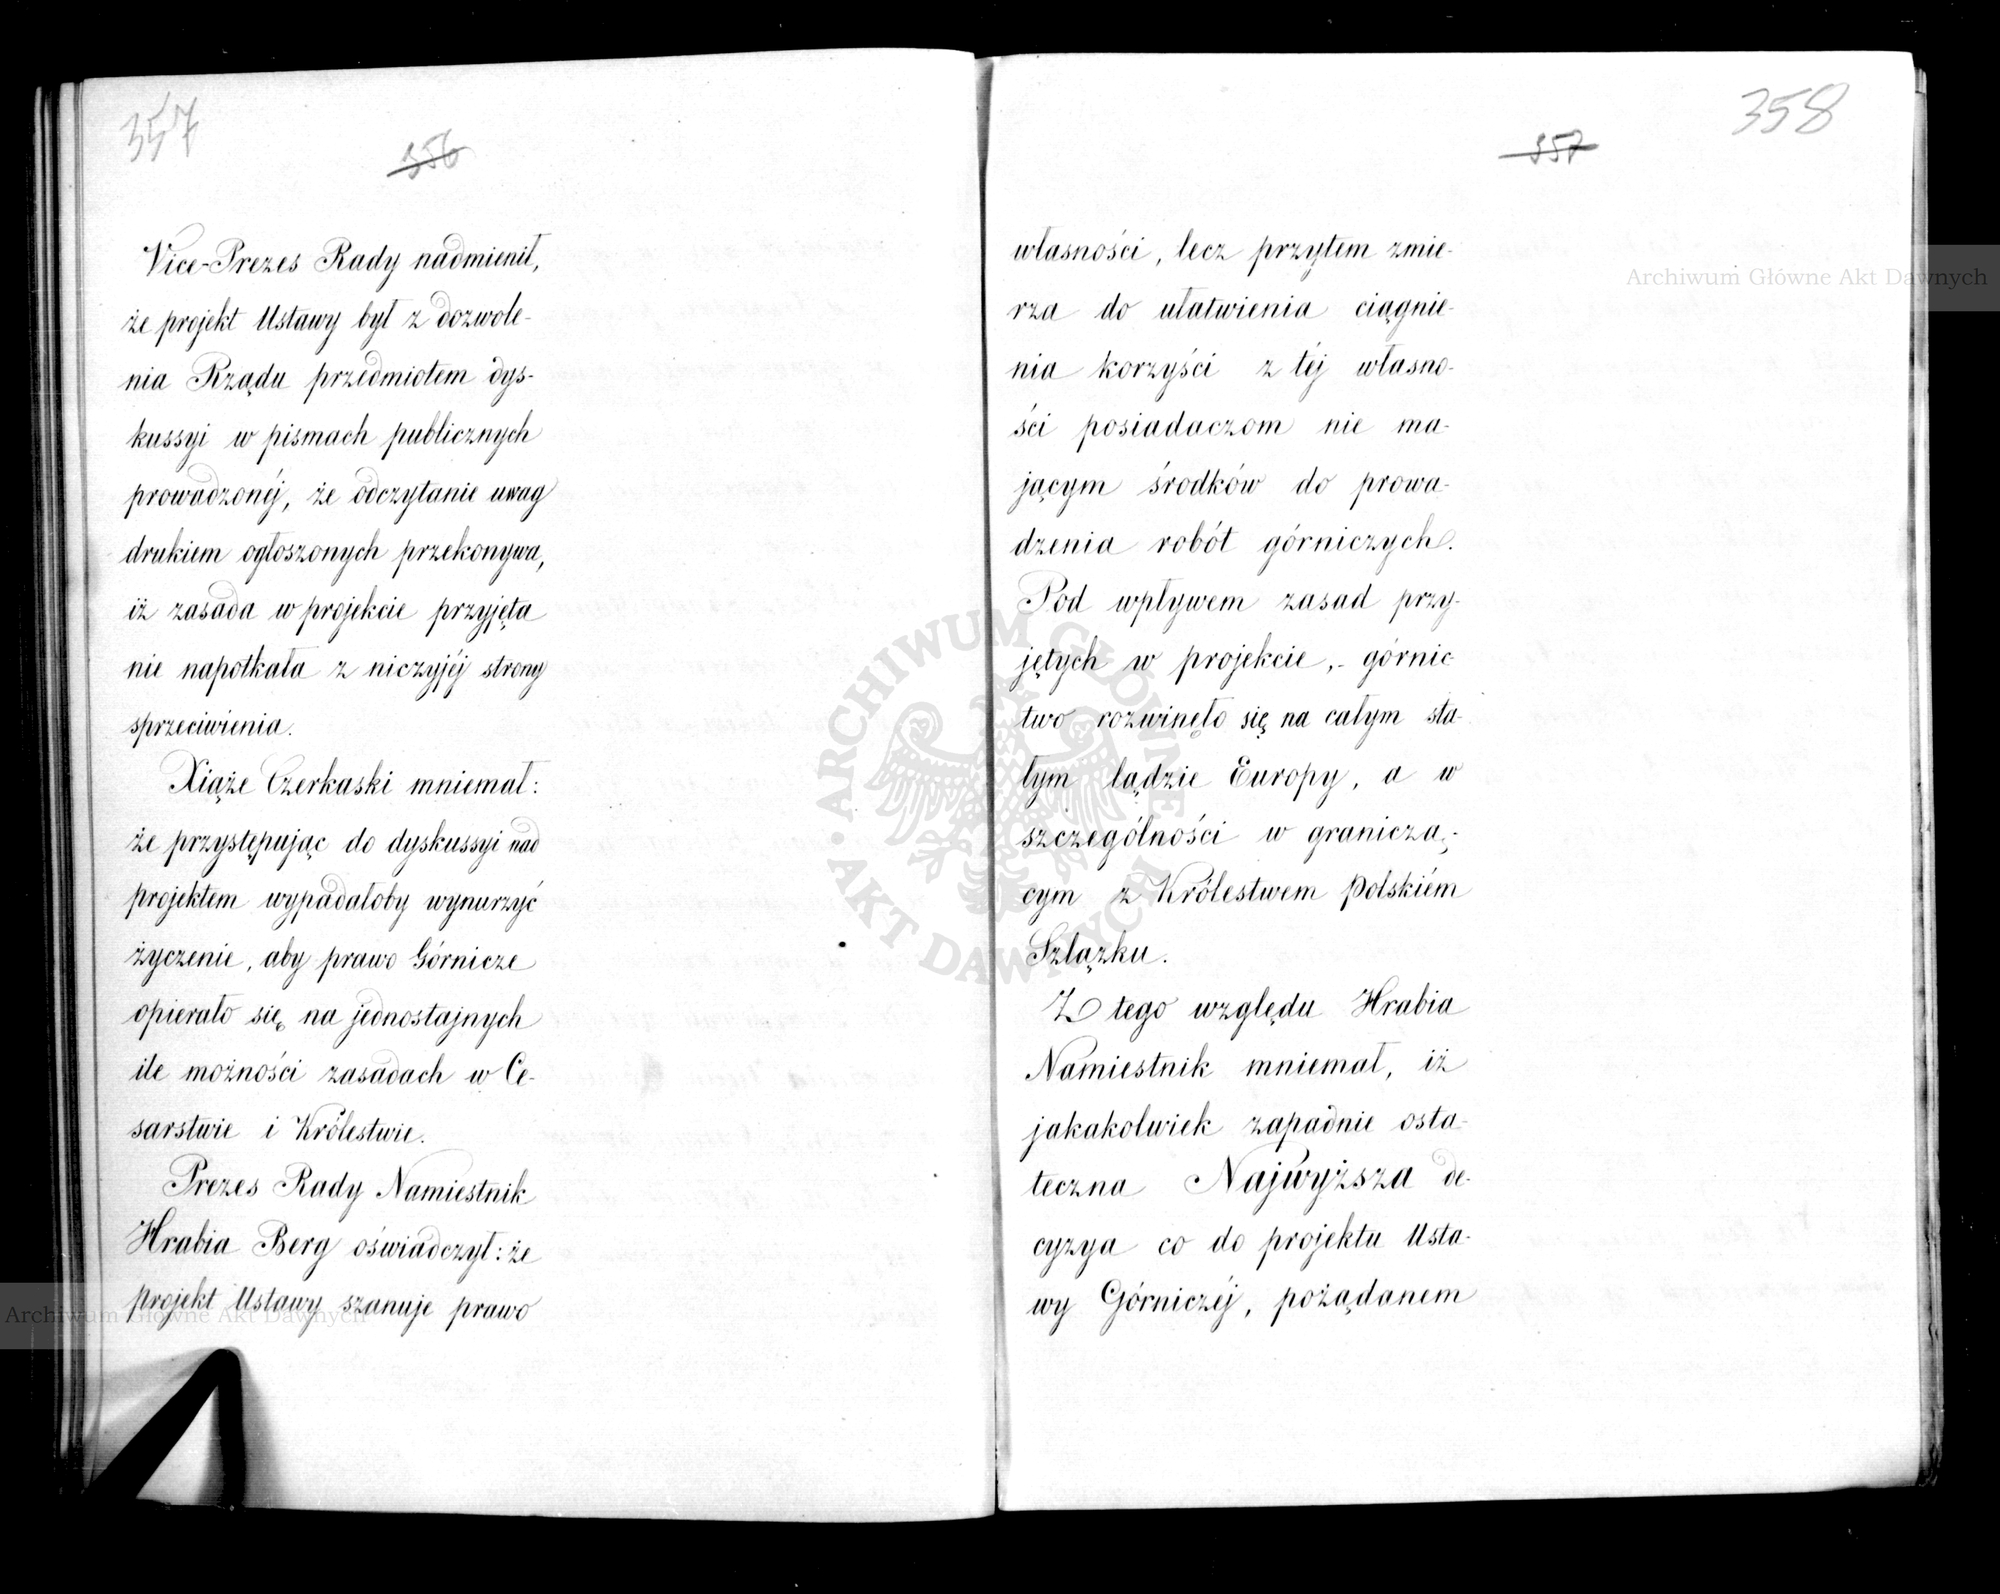 357
356
Vice-Prezes Rady nadmienił,
że projekt Ustawy był z dozwole-
nia Rządu przedmiotem dys-
kussyi w pismach publicznych
prowadzonéj, że odczytanie uwag
drukiem ogłoszonych przekonywa,
iż zasada w projekcie przyjęta
nie napotkała z niczyjéj strony
sprzeciwienia.
Xiąże Czerkaski mniemał:
że przystępując do dyskussyi nad
projektem wypadałoby wynurzyć
życzenie, aby prawo Górnicze
opierało się na jednostajnych
ile możności zasadach w Ce-
sarstwie i Królestwie.
Prezes Rady Namiestnik
Hrabia Berg oświadczył: że
projekt Ustawy szanuje prawo
Archiwum Główne Akt Dawnych
358
357
Archiwum Główne Akt Dawnych
własności, lecz przytem zmie-
rza do ułatwienia ciągnie-
nia korzyści z téj własno-
ści posiadaczom nie ma-
jącym środków do prowa-
dzenia robót górniczych.
Pod wpływem zasad przy-
jętych w projekcie,- górnic-
two rozwinęło się na całym sta-
łym lądzie Europy, a w
szczególności w granicza,-
cym z Królestwem Polskiém
Szlązku.
Z tego względu Hrabia
Namiestnik mniemał, iż
jakakolwiek zapadnie osta-
teczna Najwyższa de-
cyzya co do projektu Usta-
wy Górniczéj, pożądanem
ARCHIWUM GŁÓWNE
AKT DAWNYCH